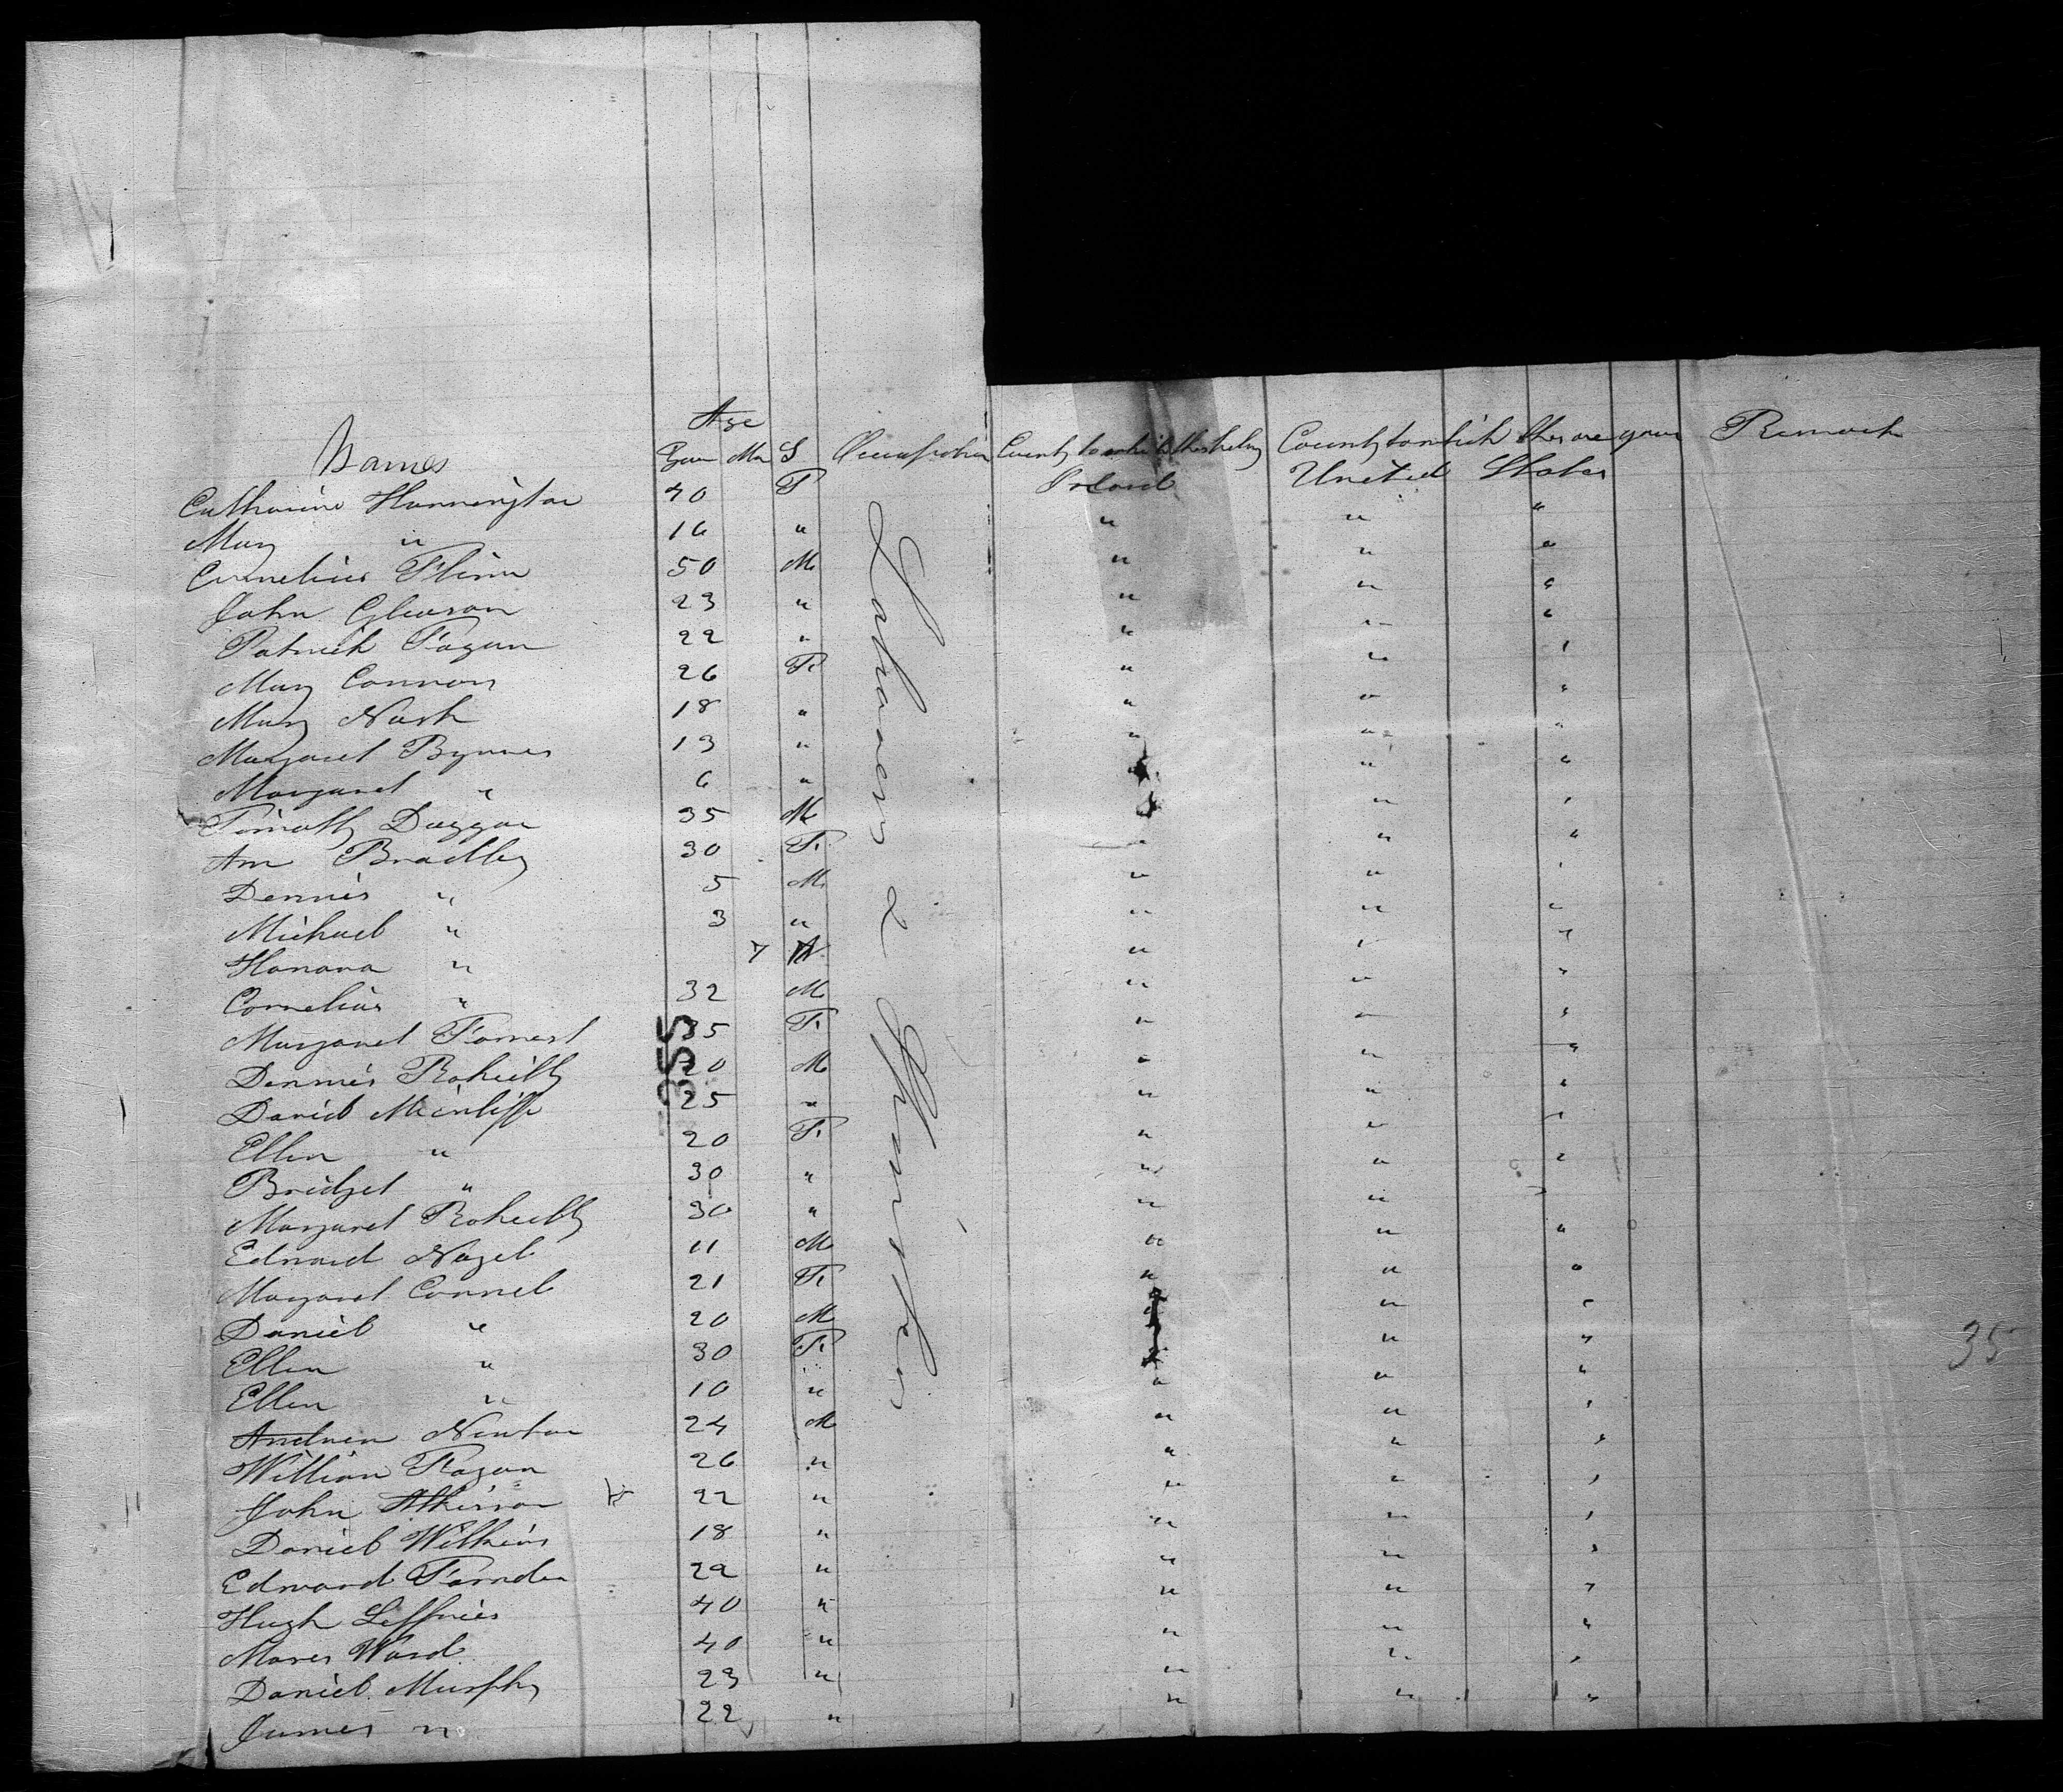 Age
Names Years Mon S Occupation County to which they belong County to which they are going Remark
Catharine Hannington 40 F Ireland United States
Mary " 16 " " " "
Cornelius Flinn 50 M " " "
John Gleason 23 " " " "
Patrick Fagan 22 " " " "
Mary Connors 26 F. " " "
Mary Nash 18 " " " "
Margaret Byrnes 13 " " " "
Margaret " 6 " " " "
Timothy Duggan 35 M " "
Ann Bradley 30 F. " " "
Dennis " 5 M. " " "
Michael " 3 " " " "
Hanora " 7 " " "
Cornelius " 32 M. " " "
Margaret Forrest 35 F. " " "
Dennis Roheilly 20 M. " " "
David McInliffe 25 " " " "
Ellen " 20 F. " " "
Bridget " 30 " " " "
Margaret Roheilly 30 " " " "
Edward Nagel 11 M. " " "
Margaret Connel 21 F. " " "
Daniel " 20 M. " " "
Ellen " 30 F. " " "
Ellen " 10 " " " "
Andrew Newton 24 M " " "
William Fagan 26 " " " "
John Atkinson 22 " " " "
Daniel Wilkins 18 " " " "
Edward 22 " " " "
Hugh Leffries 40 " " " "
Moses Ward 40 " " " "
Daniel Murphy 23 " " " "
James " 22 " " " "
Laborers & Spinsters
355
35